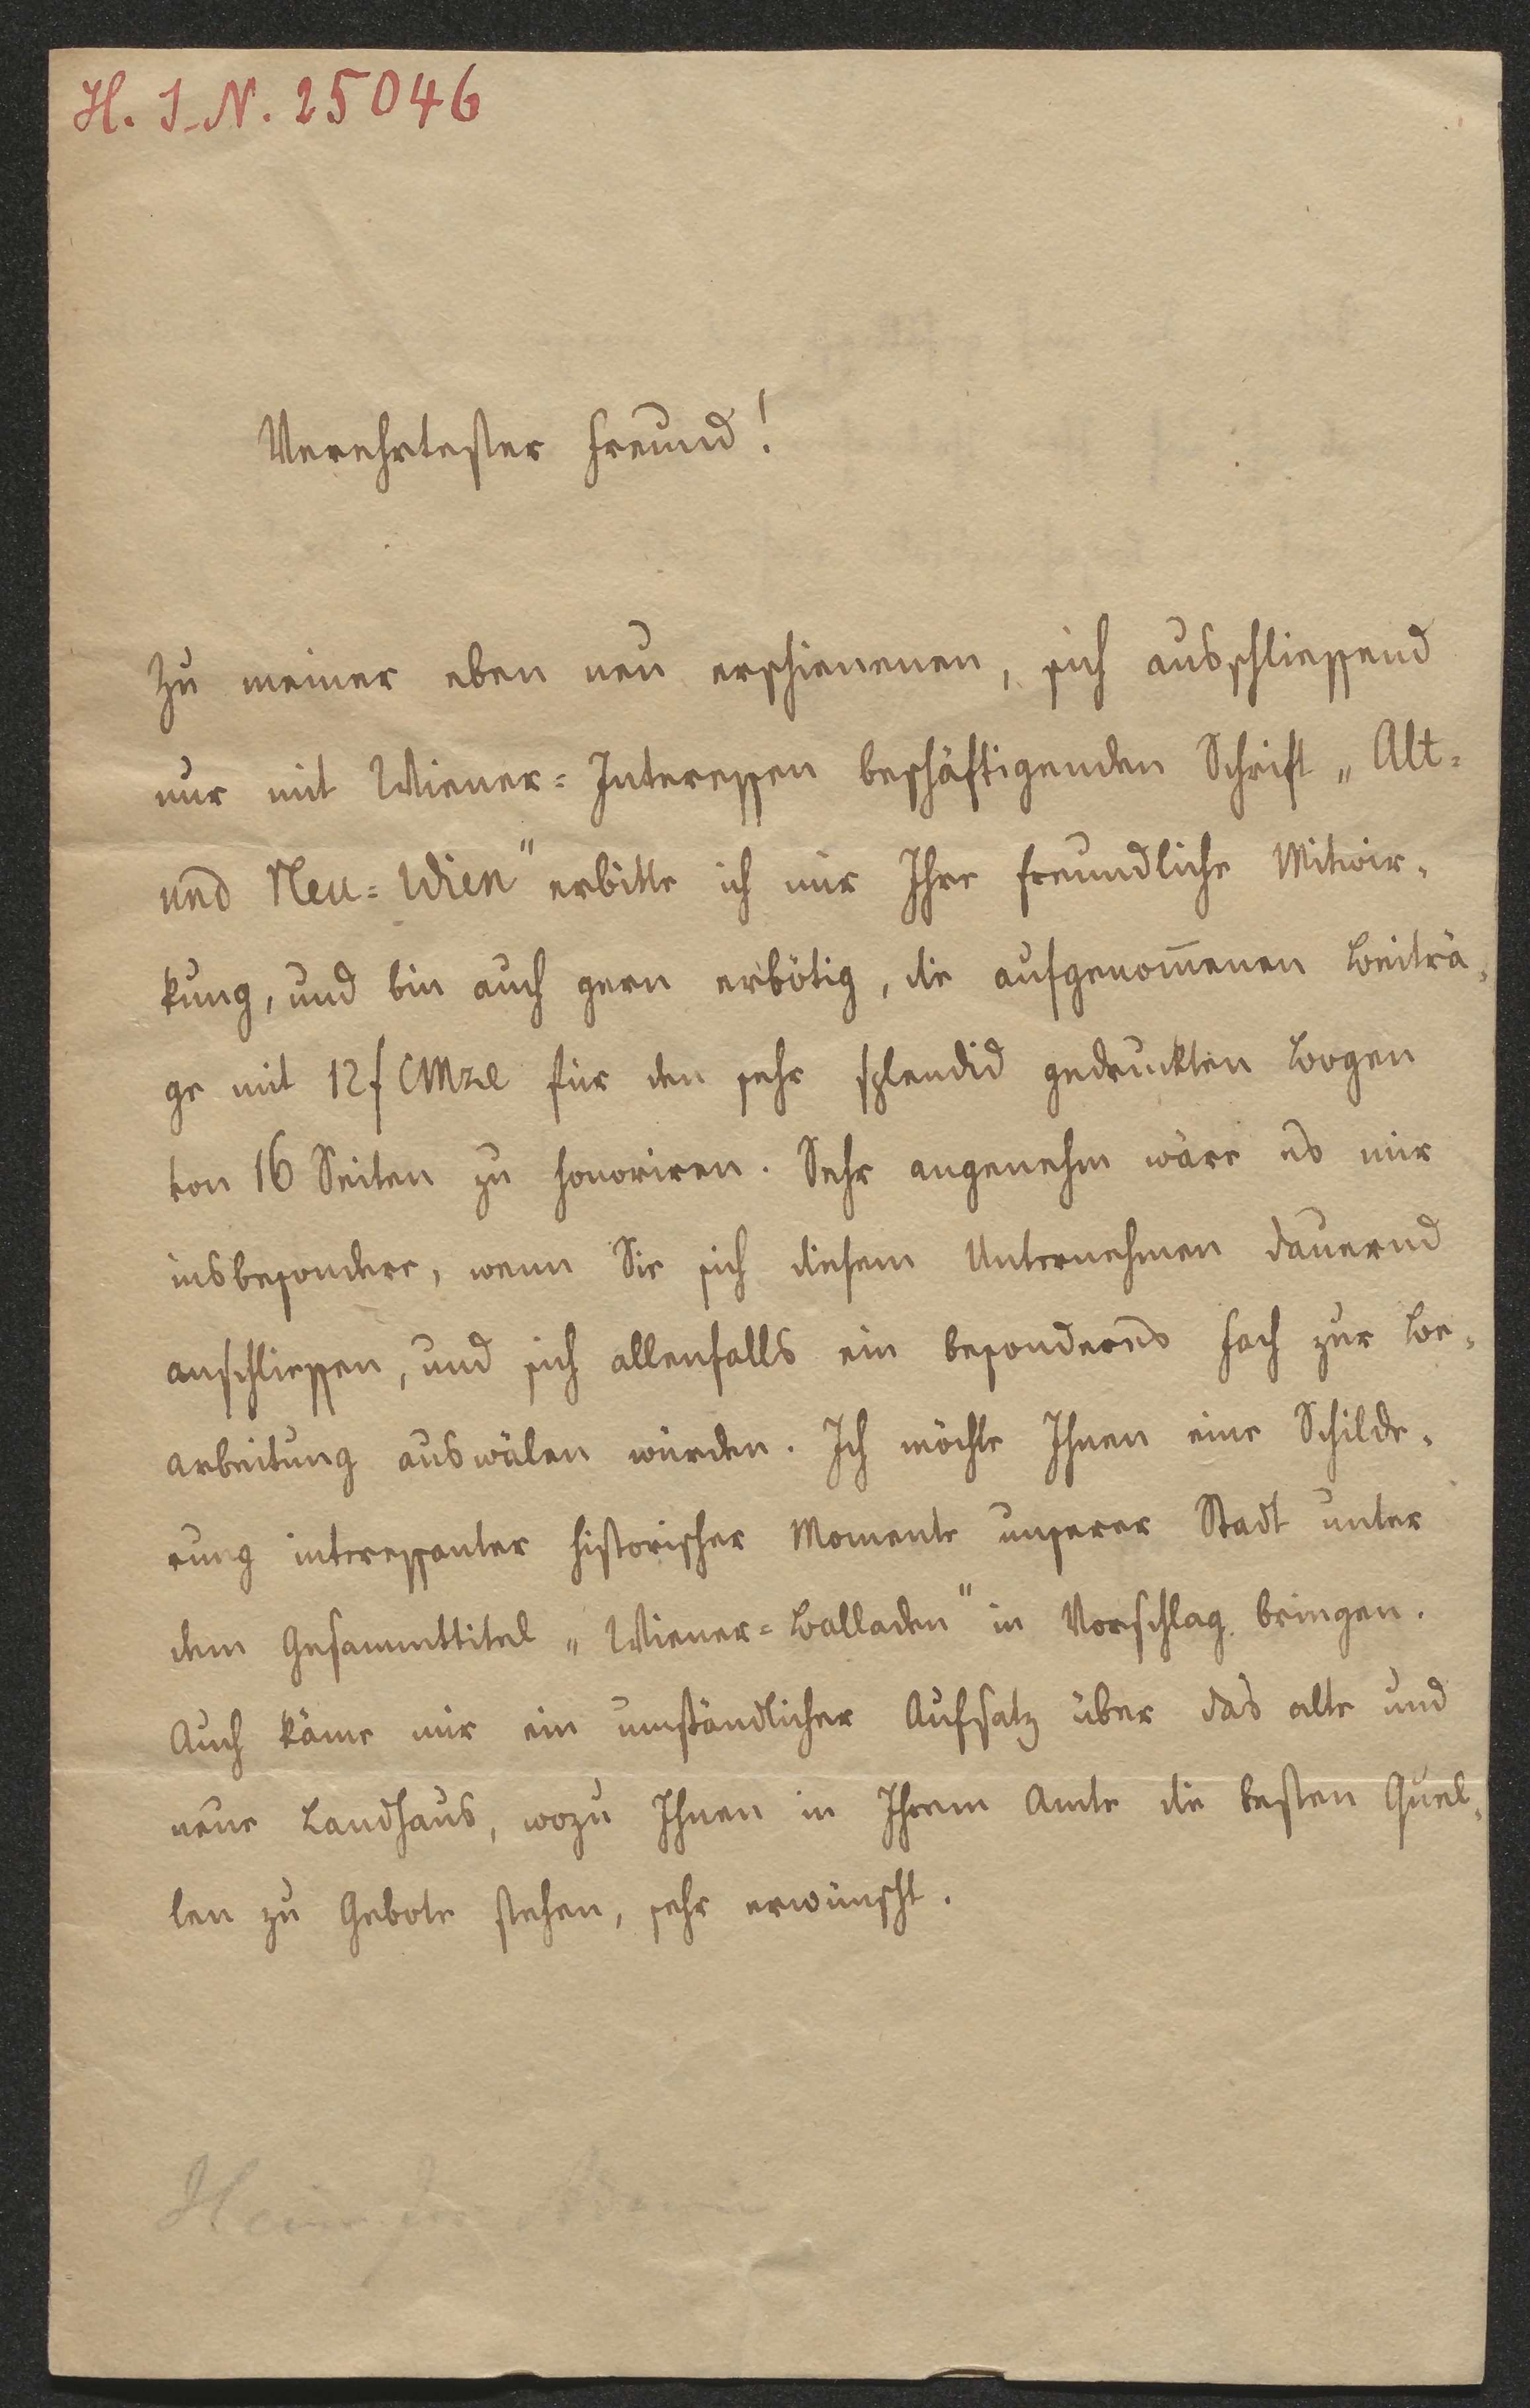 H. I. N. 25046
Verehrtester Freund!
Zu meiner eben neu erschienenen, sich ausschliessend
nur mit Wiener=Interessen beschäftigenden Schrift „Alt=
und Neu=Wien" erbitte ich mir Ihre freundliche Mitwir-
kung, und bin auch gern erbötig, die aufgenom̅enen Beiträ-
ge mit 12 f CMze für den sehr splendid gedruckten Bogen
von 16 Seiten zu honoriren. Sehr angenehm wäre es mir
insbesondere, wenn Sie sich diesem Unternehmen dauernd
anschliessen, und sich allenfalls ein besonderes Fach zur Be-
arbeitung auswälen würden. Ich möchte Ihnen eine Schilde-
rung interessanter historischer Momente unserer Stadt unter
dem Gesammttitel „Wiener=Balladen" in Vorschlag bringen.
Auch käme mir ein umständlicher Aufsatz über das alte und
neue Landhaus, wozu Ihnen in Ihrem Amte die besten Quel-
len zu Gebote stehen, sehr erwünscht.